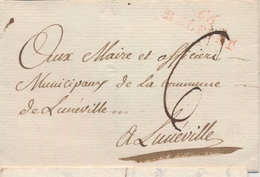 Aux Maire et officiers
Municipaux de la Commune
de Lunéville
à Lunéville